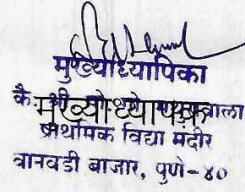 मुख्याध्यापिका
कै. मुख्याध्यापक वाला
प्राथमिक विद्या मंदीर
वानवडी बाजार, पुणे-४०